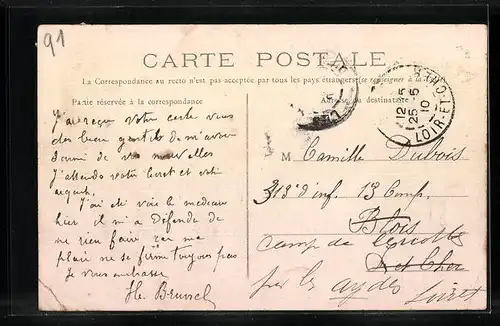 91
CARTE POSTALE
La Correspondance au recto n'est pas acceptée par tous les pays étrangers (se renseigner à la
Partie réservée à la correspondance
Adresse du destinataire
12-5
25-5
10
LOIR-ET-CHER
J'ai reçu votre carte vous
des bien gentil de m'avoir
donné de vos nouvelles
J'attends votre livret et votre
argent.
J'ai été voir le medecin
hier il m'a défendu de
ne rien faire car ma
plaie ne se firme toujours pas
Je vous embrasse
Brunel
M Camille Dubois
313e d'inf. 13 Comp.
Blois
Camp de Cercottes
Loir et Cher
par les aydes
Loiret